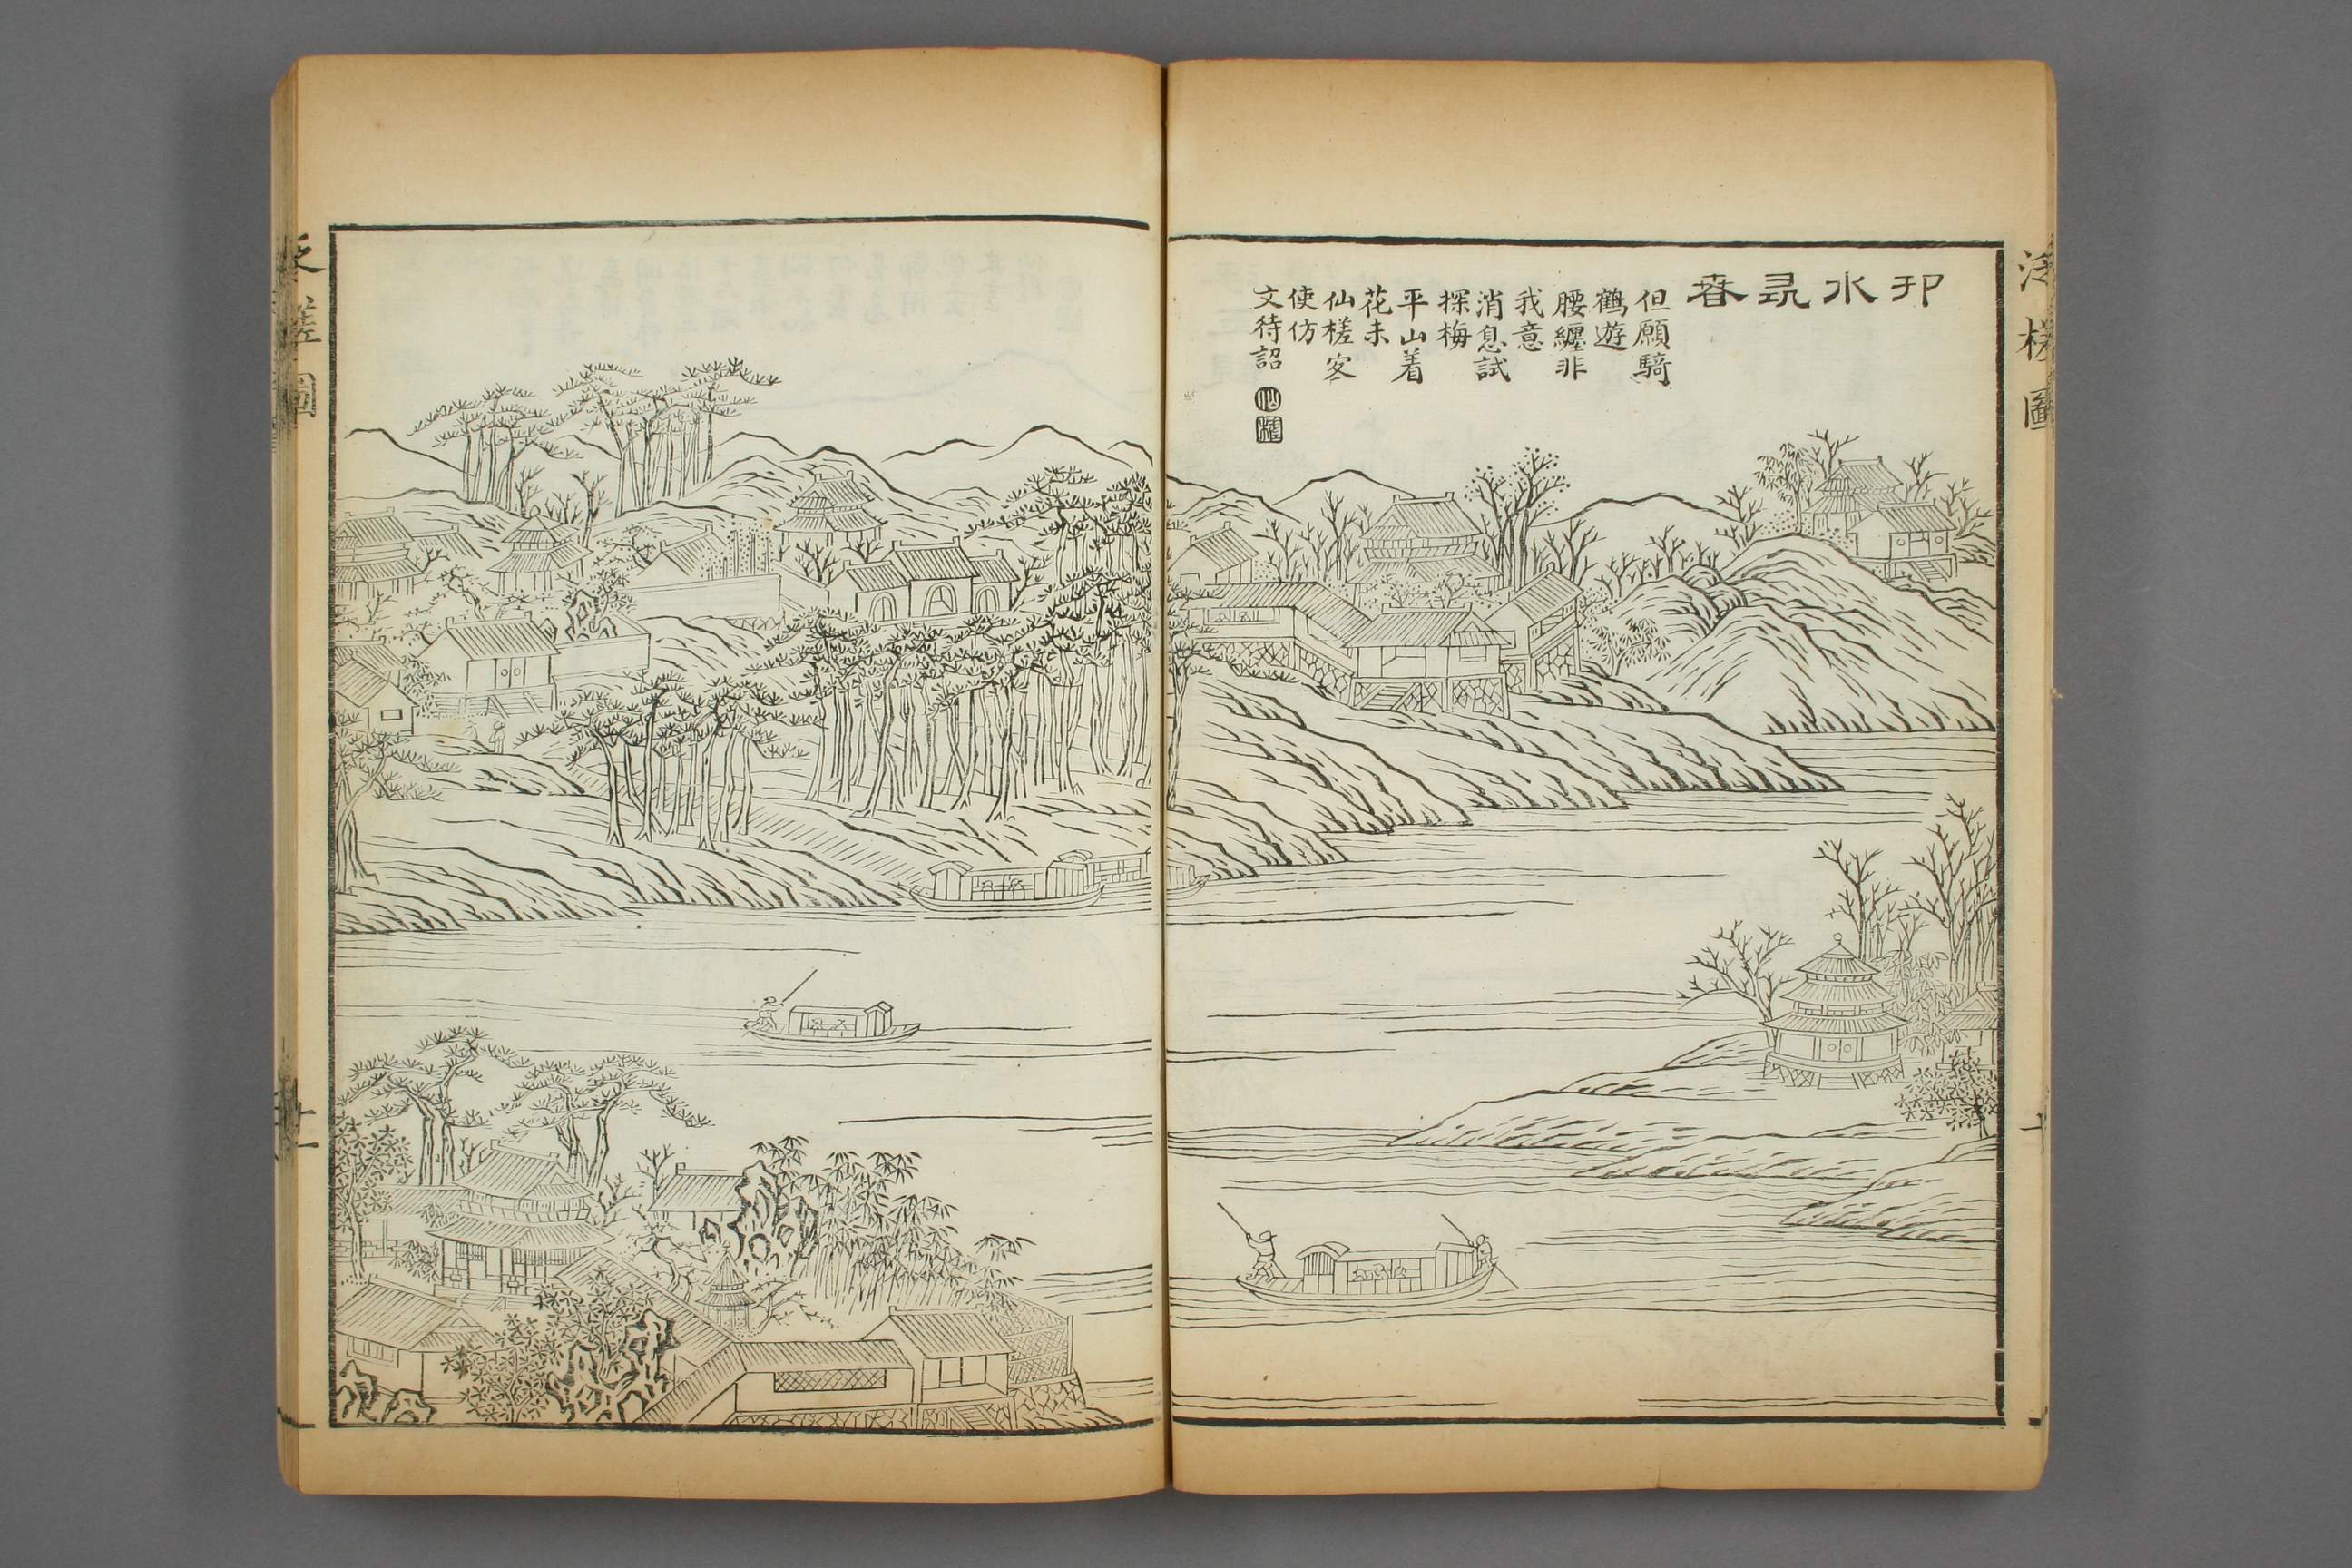 泛槎圖
邗水尋春
但願騎
鶴遊
腰纏非
我意
消息試
探梅
平山着
花未
仙槎客
使仿
文待詔
仙
槎
槎圖